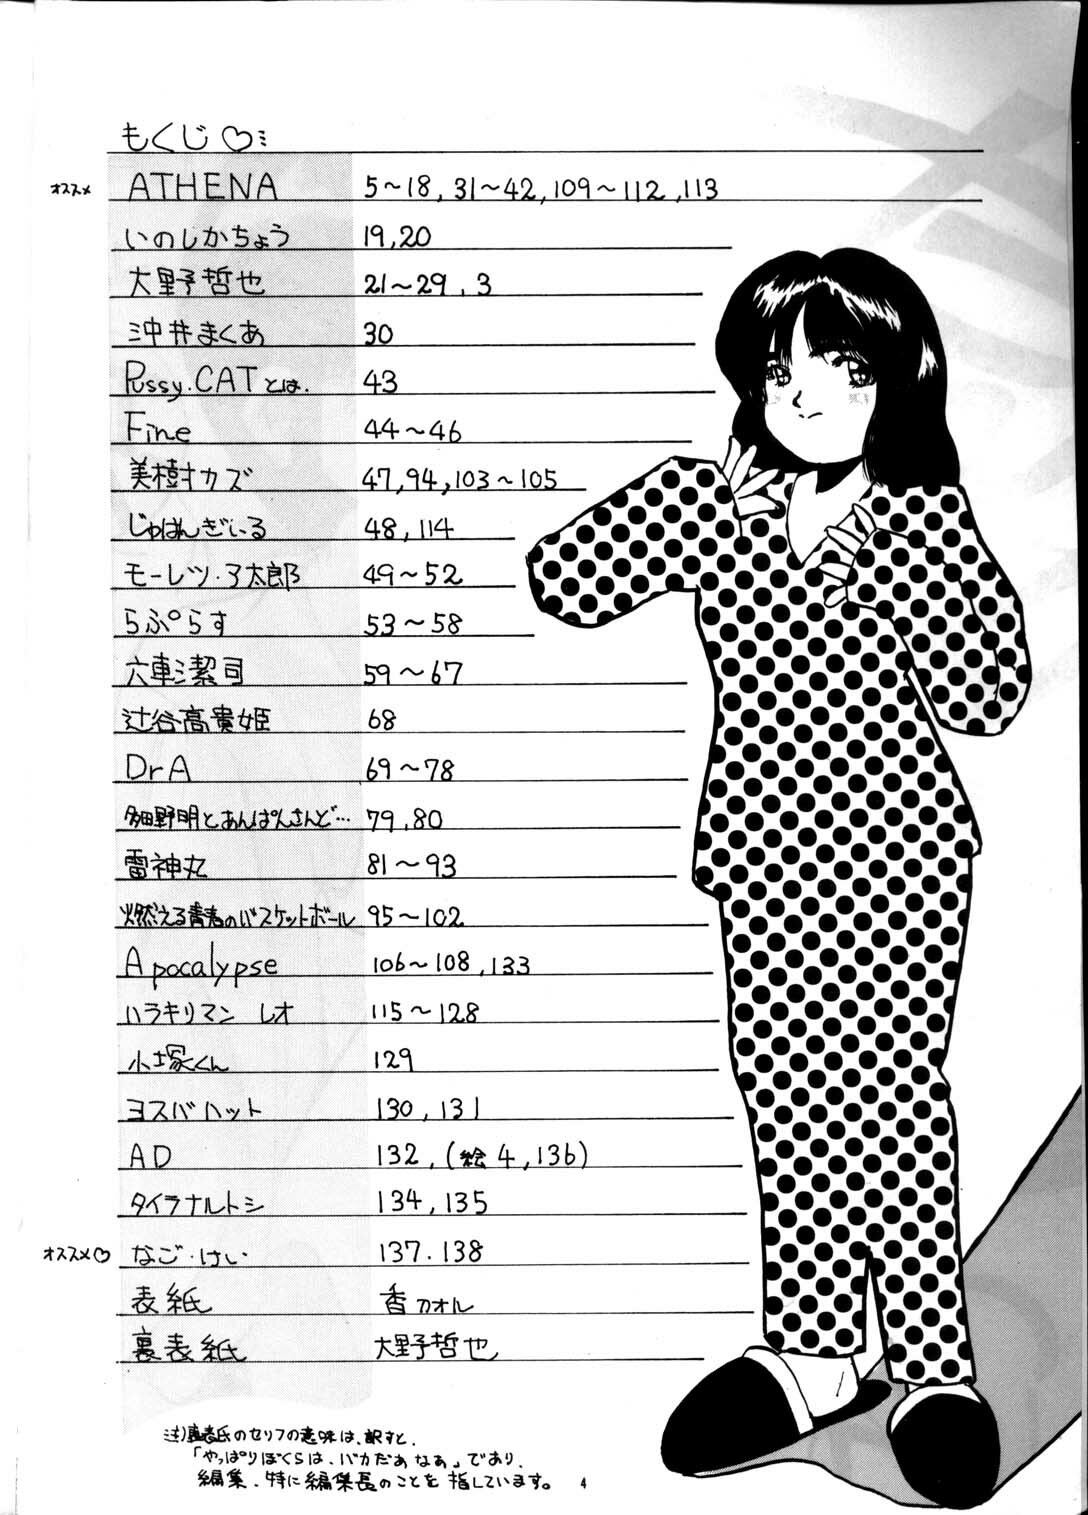 もくじ♡
オススメ ATHENA 5〜18, 31〜42, 109〜112, 113
いのしかちょう 19, 20
大野哲也 21〜29, 3
沖井まくあ 30
Pussy.CATとは. 43
Fine 44〜46
美樹カズ 47, 94, 103〜105
じゅはんぎぃる 48, 114
モーレツ・ア太郎 49〜52
らぷらす 53〜58
六車潔司 59〜67
辻谷高貴姫 68
DrA 69〜78
多田野明とあんぱんさんど… 79, 80
雷神丸 81〜93
燃える青春のバスケットボール 95〜102
Apocalypse 106〜108, 133
ハラキリマン レオ 115〜128
小塚くん 129
ヨスバハット 130, 131
AD 132, (絵4, 136)
タイラナルトシ 134, 135
オススメ♡ なご・けい 137. 138
表紙 香カオル
裏表紙 大野哲也
注)裏表氏のセリフの意味は、訳すと、
「やっぱりぼくらは、バカだあなあ」であり、
編集、特に編集長のことを指しています。
4